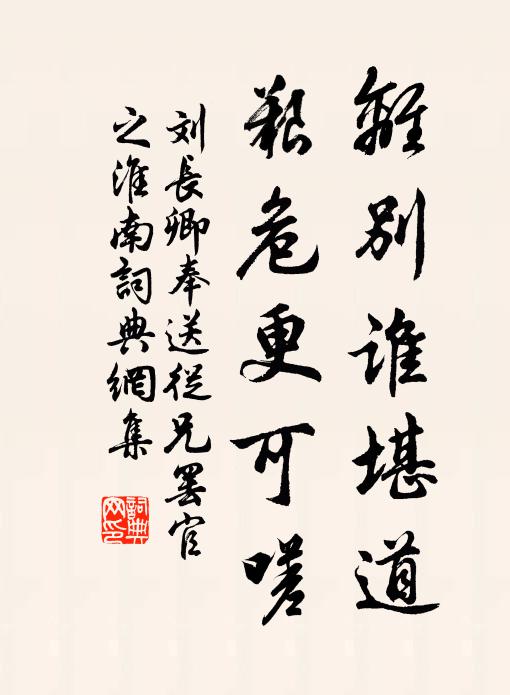 離別誰堪道
艱危更可嗟
刘長卿奉送從兄罢官
之淮南詞典網集
詞典
网印